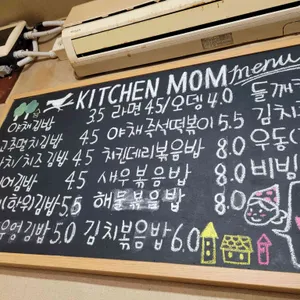 KITCHEN MOM menu
야채김밥 3.5 라면 4.5/오뎅 4.0
고추멸치김밥 4.5 야채 즉석떡볶이 5.5
치/치즈김밥 4.5 치킨데리볶음밥 8.0 우동
김밥 4.5 새우볶음밥 8.0 비빔
김밥 5.5 해물볶음밥 8.0
우엉김밥 5.0 김치볶음밥 6.0
들깨
김치